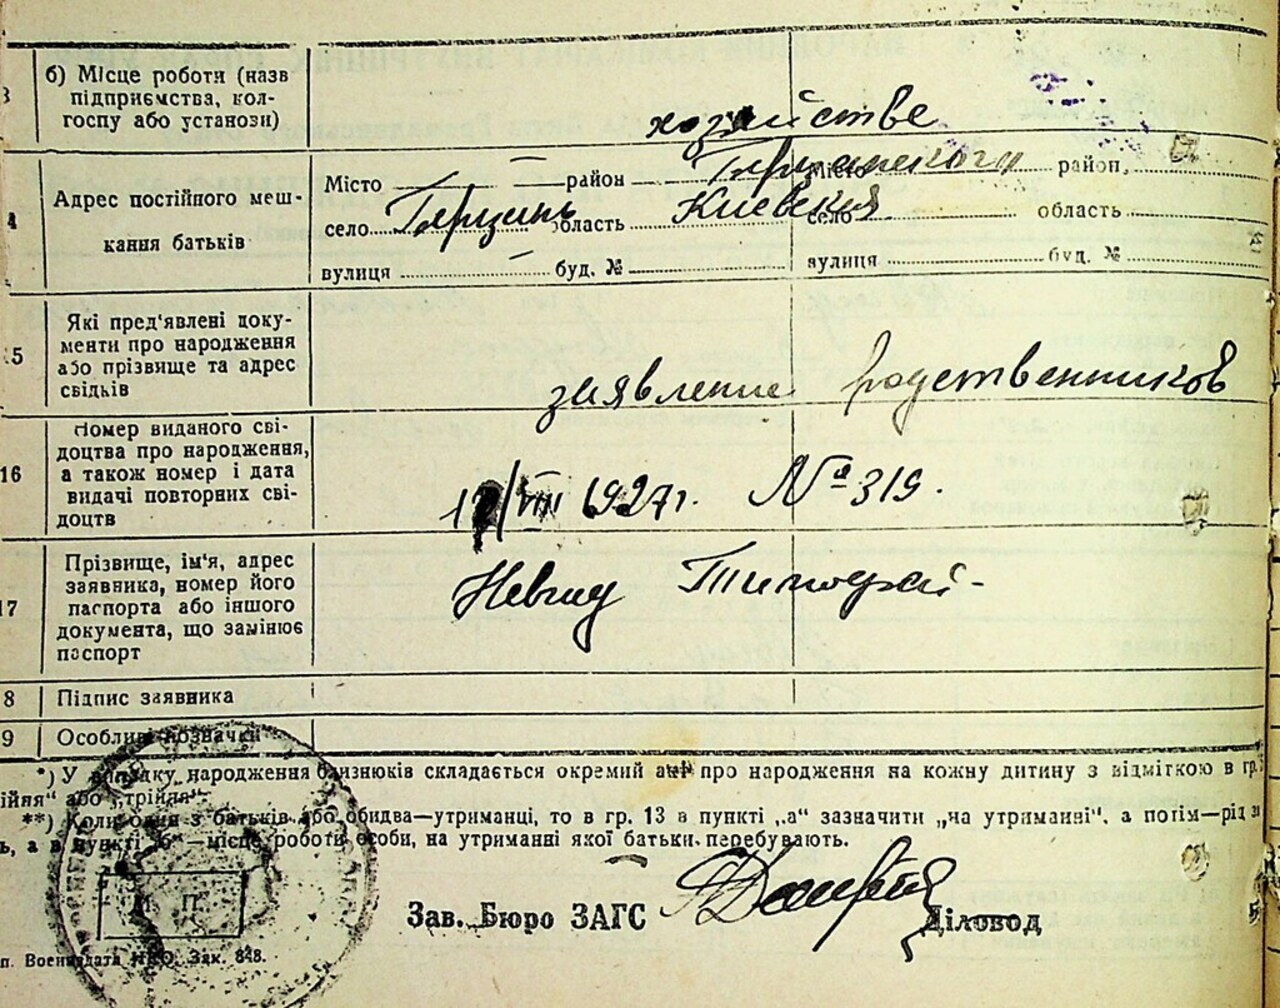 б) Місце роботи (назв
підприємства, кол-
госпу або установи)
хозяйстве
4
Адрес постійного меш-
кання батьків
Місто — район
Місто район
село область Киевская село область
вулиця — буд. №
вулиця буд. №
15
Які пред'явлені доку-
менти про народження
або прізвище та адрес
свідків
заявление родственников
16
Номер виданого сві-
доцтва про народження,
а також номер і дата
видачі повторних сві-
доцтв
/VIII 1927г. № 319.
17
Прізвище, ім'я, адрес
заявника, номер його
паспорта або іншого
документа, що замінює
паспорт
8 Підпис заявника
9 Особливі позначки
*) У випадку народження близнюків складається окремий акт про народження на кожну дитину з відміткою в гр.
ійня" або „трійня".
**) Коли один з батьків або обидва—утриманці, то в гр. 13 в пункті „а" зазначити „на утриманні", а потім—рід
ь, а в пункті „б"—місце роботи особи, на утриманні якої батьки перебувають.
Зав. Бюро ЗАГС Діловод
п. Воениздата НКО. Зак. 848.